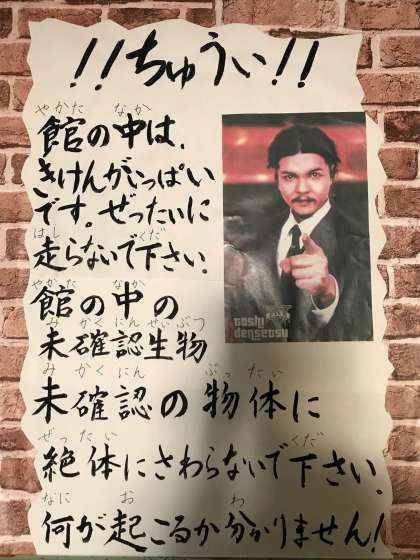 !!ちゅうい!!
やかた なか
館の中は、
きけんがいっぱい
です。ぜったいに
はし くだ
走らないで下さい。
やかた なか
館の中の
みかくにんせいぶつ
未確認生物
みかくにん ぶったい
未確認の物体に
ぜったい くだ
絶体にさわらないで下さい。
なに お わ
何が起こるか分かりません!
toshi
densetsu